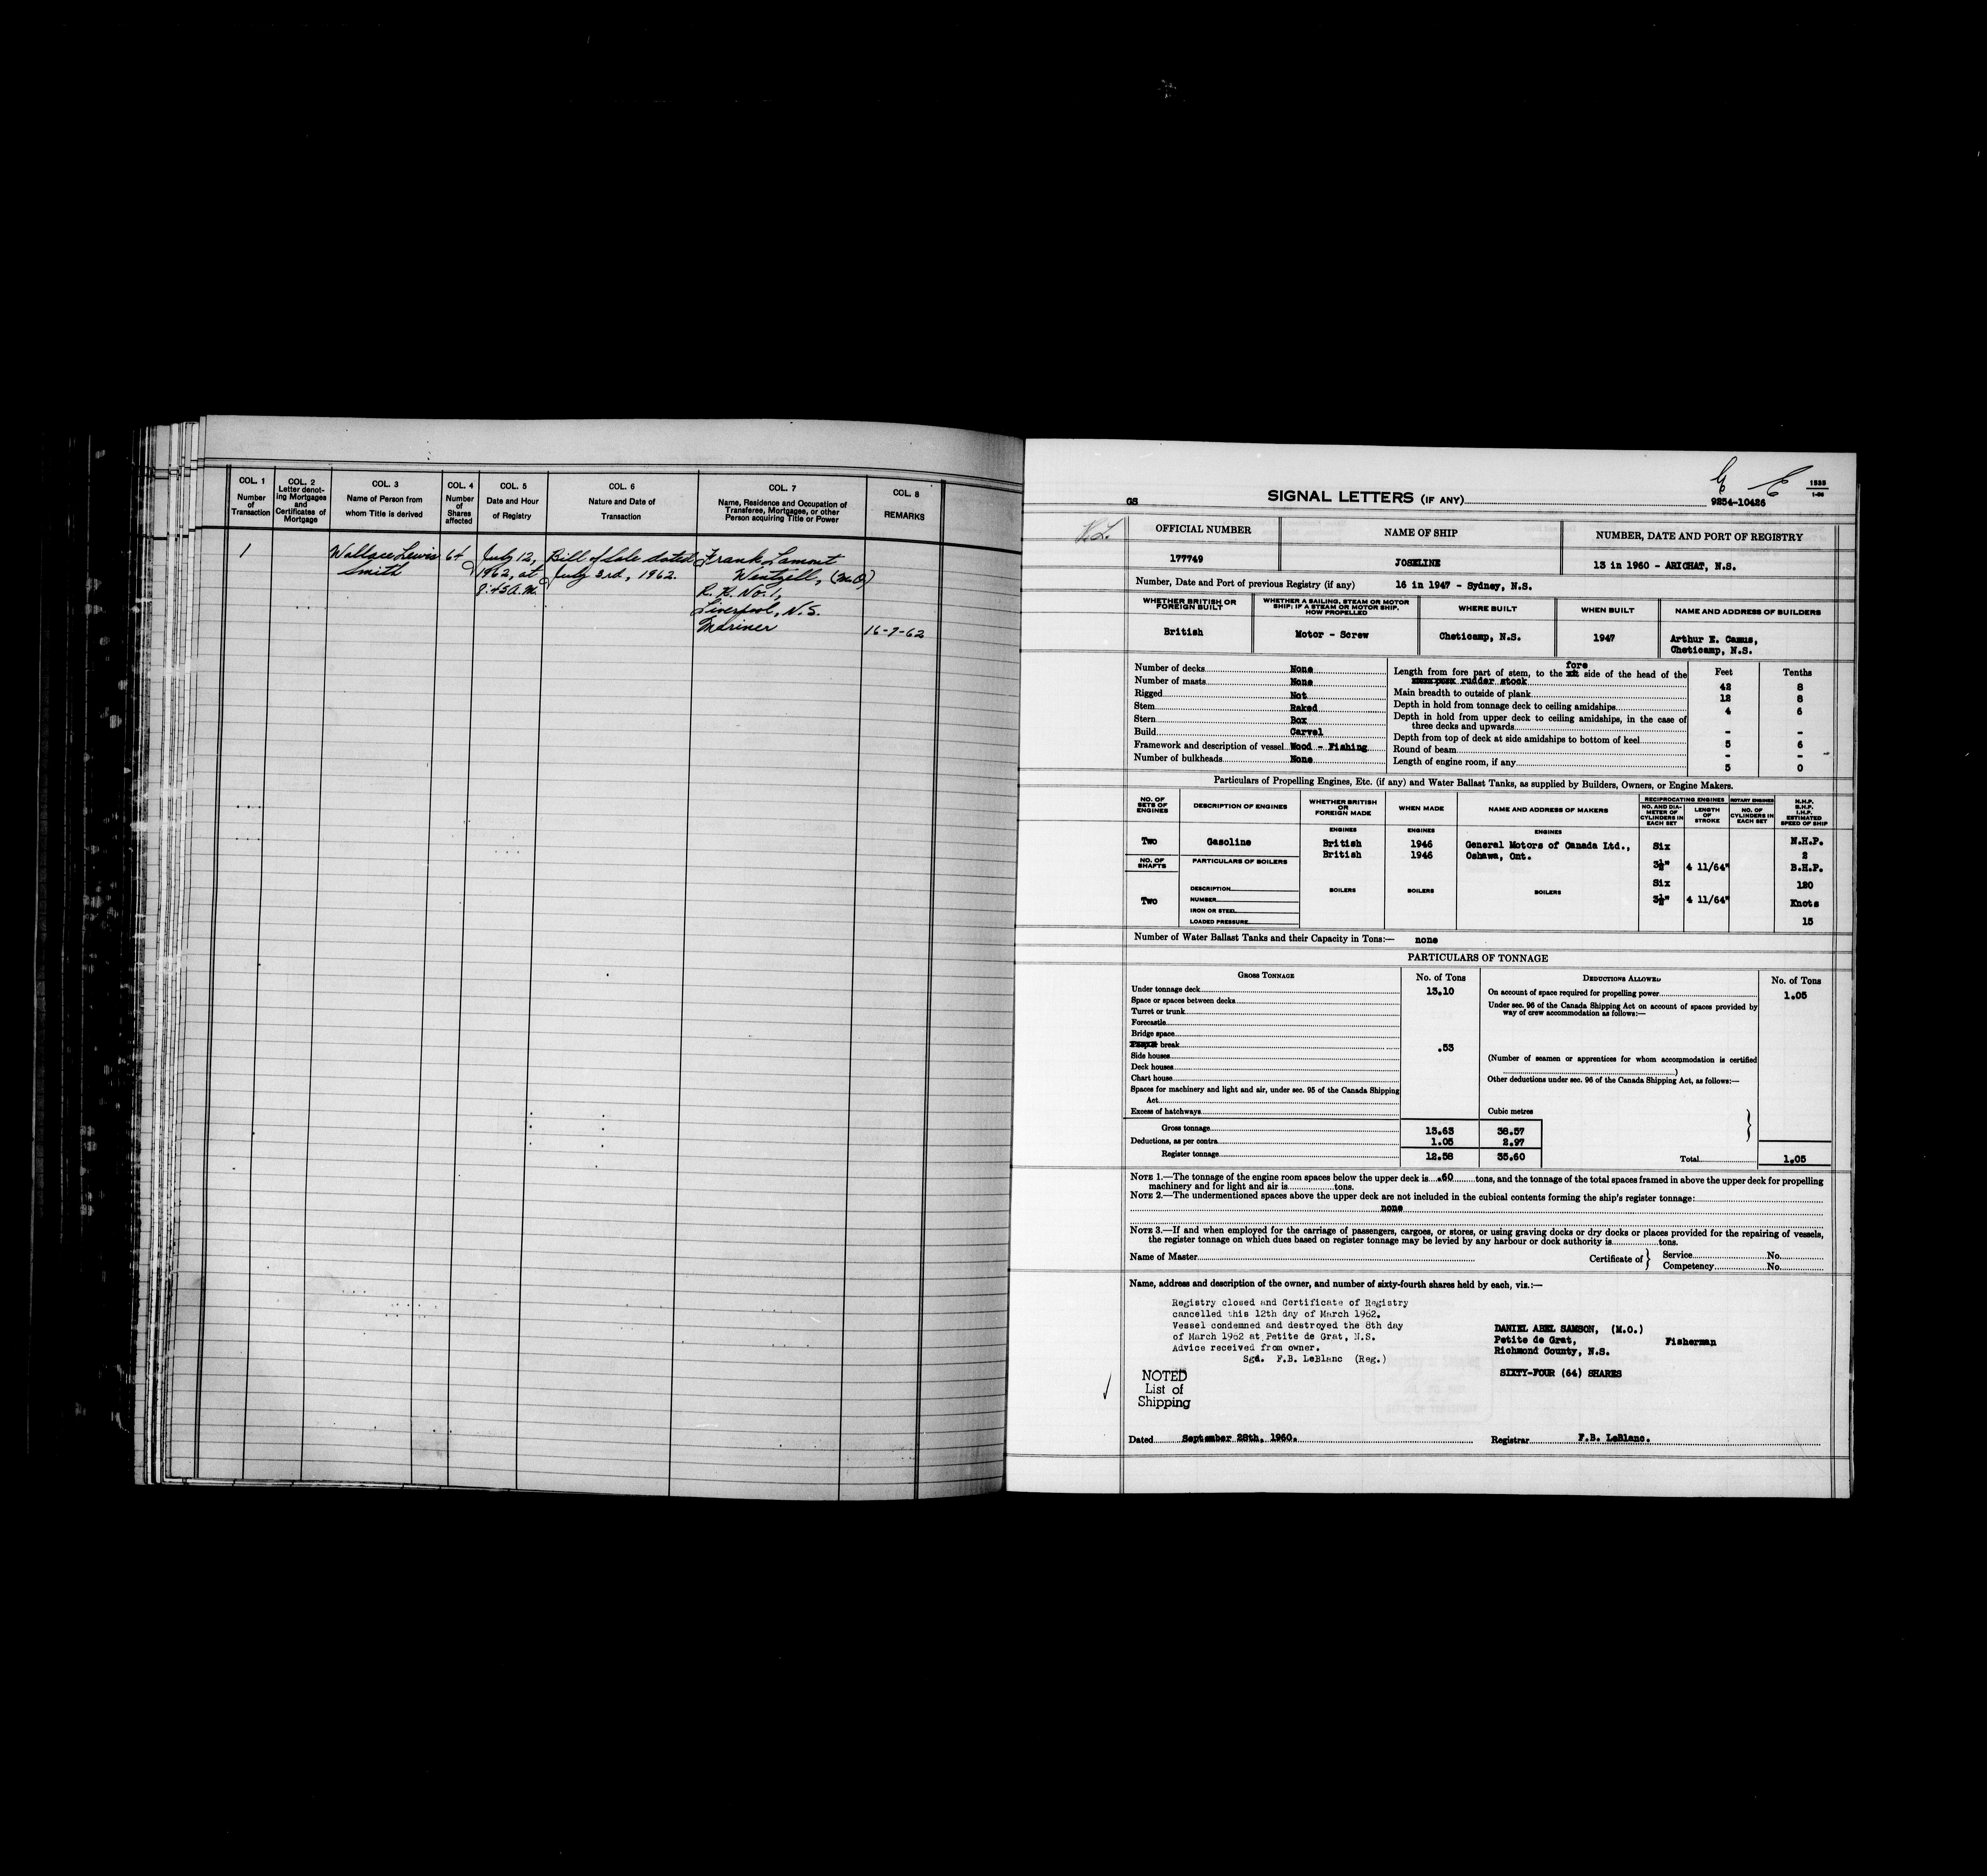 COL. 1
Number
of
Transaction
COL. 2
Letter denot-
ing Mortgages
and
Certificates of
Mortgage
COL. 3
Name of Person from
whom Title is derived
COL. 4
Number
of
Shares
affected
COL. 5
Date and Hour
of Registry
COL. 6
Nature and Date of
Transaction
COL. 7
Name, Residence and Occupation of
Transferee, Mortgagee, or other
Person acquiring Title or Power
COL. 8
REMARKS
1
Wallace Lewis
Smith
64
July 12,
1962, at
Bill of Sale dated
July 3rd, 1962.
Frank Lamont
Wentzell, (M.O)
R. R. No. 1,
Liverpool, N.S.
Mariner
16-7-62
GS
SIGNAL LETTERS (IF ANY)
9254-10426
OFFICIAL NUMBER
NAME OF SHIP
NUMBER, DATE AND PORT OF REGISTRY
177749
JOSELINE
13 in 1960 - ARICHAT, N.S.
Number, Date and Port of previous Registry (if any) 16 in 1947 - Sydney, N.S.
WHETHER BRITISH OR
FOREIGN BUILT
WHETHER A SAILING, STEAM OR MOTOR
SHIP; IF A STEAM OR MOTOR SHIP,
HOW PROPELLED
WHERE BUILT
WHEN BUILT
NAME AND ADDRESS OF BUILDERS
British
Motor - Screw
Cheticamp, N.S.
1947
Arthur E. Camus,
Cheticamp, N.S.
Number of decks None
Number of masts None
Rigged Not
Stem Raked
Stern Box
Build Carvel
Framework and description of vessel Wood - Fishing
Number of bulkheads None
Feet Tenths
fore
Length from fore part of stem, to the side of the head of the
rudder stock 42 8
Main breadth to outside of plank 12 8
Depth in hold from tonnage deck to ceiling amidships 4 6
Depth in hold from upper deck to ceiling amidships, in the case of
three decks and upwards - -
Depth from top of deck at side amidships to bottom of keel 5 6
Round of beam - -
Length of engine room, if any 5 0
Particulars of Propelling Engines, Etc. (if any) and Water Ballast Tanks, as supplied by Builders, Owners, or Engine Makers.
NO. OF
SETS OF
ENGINES
DESCRIPTION OF ENGINES
WHETHER BRITISH
OR
FOREIGN MADE
WHEN MADE
NAME AND ADDRESS OF MAKERS
RECIPROCATING ENGINES
ROTARY ENGINES
NO. AND DIA-
METER OF
CYLINDERS IN
EACH SET
LENGTH
OF
STROKE
NO. OF
CYLINDERS IN
EACH SET
N.H.P.
B.H.P.
I.H.P.
ESTIMATED
SPEED OF SHIP
ENGINES ENGINES ENGINES
Two Gasoline British 1946 General Motors of Canada Ltd., Six N.H.P.
British 1946 Oshawa, Ont. 2
NO. OF
SHAFTS
PARTICULARS OF BOILERS
3½" 4 11/64" B.H.P.
Six 120
DESCRIPTION BOILERS BOILERS BOILERS
Two NUMBER 3½" 4 11/64" Knots
IRON OR STEEL
LOADED PRESSURE 15
Number of Water Ballast Tanks and their Capacity in Tons:— none
PARTICULARS OF TONNAGE
GROSS TONNAGE
No. of Tons
DEDUCTIONS ALLOWED
No. of Tons
Under tonnage deck 13.10
Space or spaces between decks
Turret or trunk
Forecastle
Bridge space
break .53
Side houses
Deck houses
Chart house
Spaces for machinery and light and air, under sec. 95 of the Canada Shipping
Act
Excess of hatchways
Cubic metres
Gross tonnage 13.63 38.57
Deductions, as per contra 1.05 2.97
Register tonnage 12.58 35.60
On account of space required for propelling power 1.05
Under sec. 96 of the Canada Shipping Act on account of spaces provided by
way of crew accommodation as follows:—
(Number of seamen or apprentices for whom accommodation is certified
)
Other deductions under sec. 96 of the Canada Shipping Act, as follows:—
Total 1.05
NOTE 1.—The tonnage of the engine room spaces below the upper deck is .60 tons, and the tonnage of the total spaces framed in above the upper deck for propelling
machinery and for light and air is tons.
NOTE 2.—The undermentioned spaces above the upper deck are not included in the cubical contents forming the ship's register tonnage:
none
NOTE 3.—If and when employed for the carriage of passengers, cargoes, or stores, or using graving docks or dry docks or places provided for the repairing of vessels,
the register tonnage on which dues based on register tonnage may be levied by any harbour or dock authority is tons.
Name of Master
Certificate of
Service No.
Competency No.
Name, address and description of the owner, and number of sixty-fourth shares held by each, viz.:—
Registry closed and Certificate of Registry
cancelled this 12th day of March 1962.
Vessel condemned and destroyed the 8th day
of March 1962 at Petite de Grat, N.S.
Advice received from owner.
Sgd. F.B. LeBlanc (Reg.)
DANIEL ABEL SAMSON, (M.O.)
Petite de Grat, Fisherman
Richmond County, N.S.
SIXTY-FOUR (64) SHARES
NOTED
List of
Shipping
Dated September 28th, 1960.
Registrar F.B. LeBlanc.